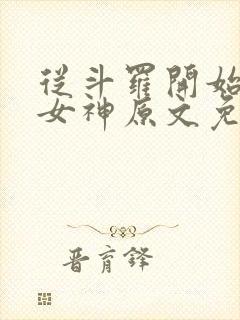 從斗羅開始
女神原文免
晉育鋒